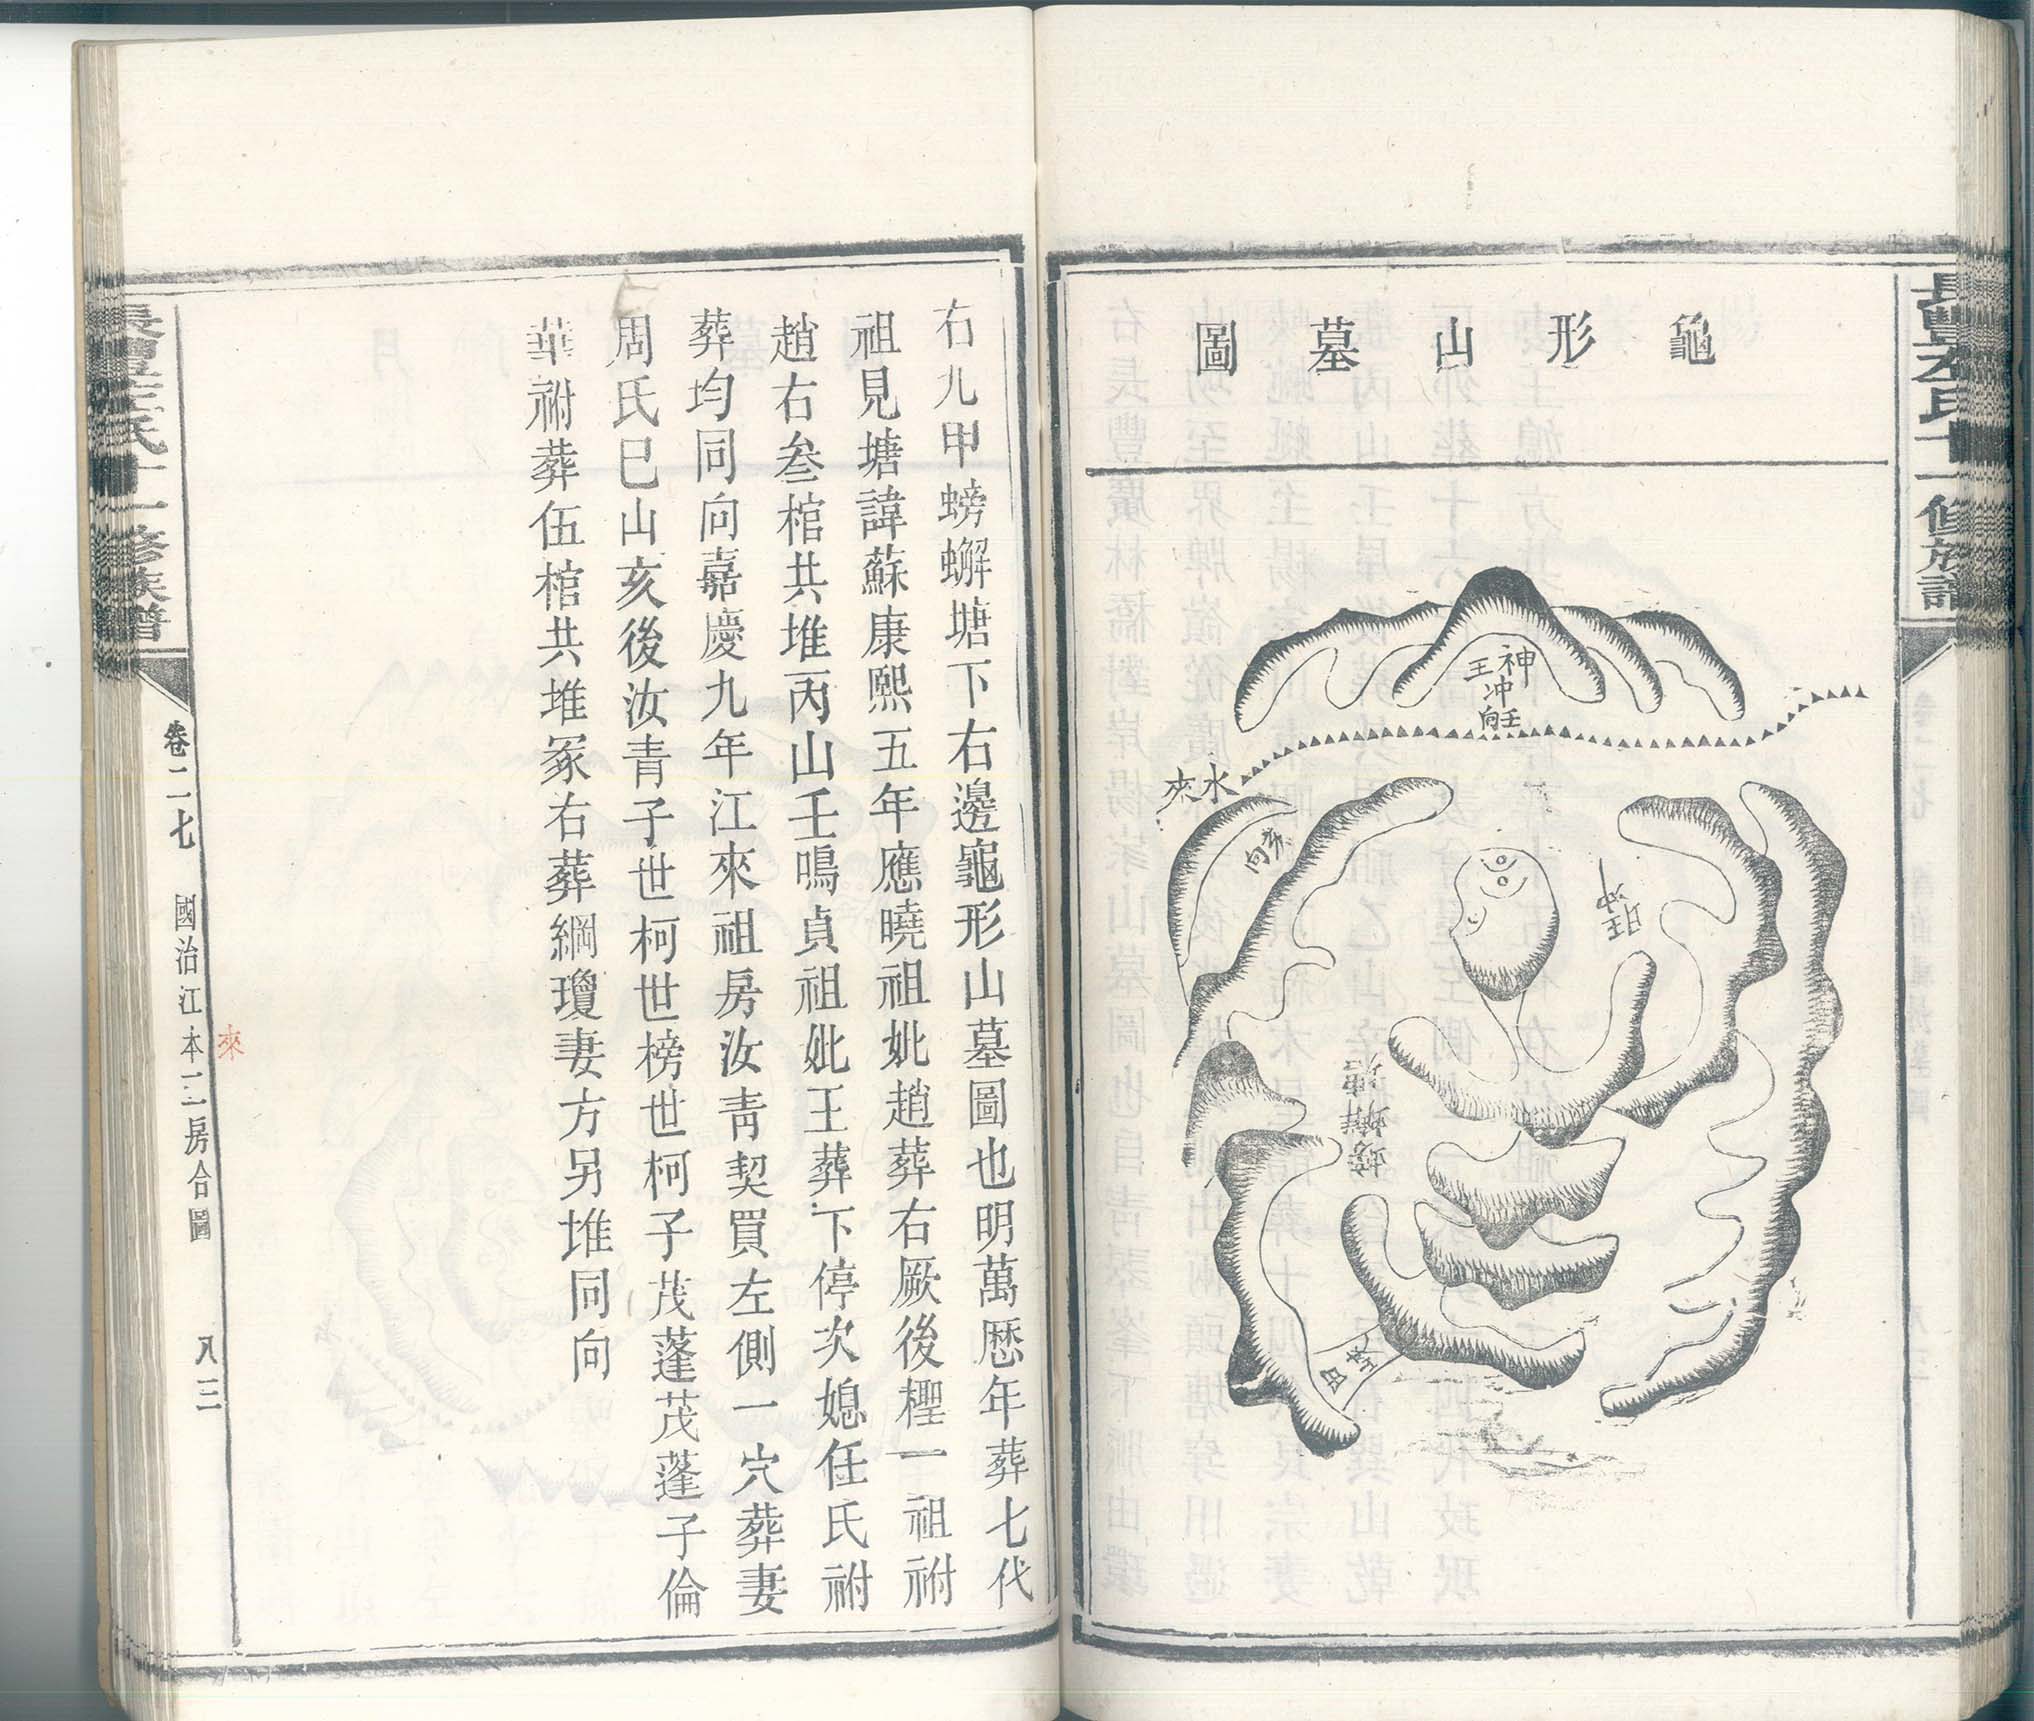 龜形山墓圖
神王冲
壬向
水來
亥向
旺冲
螃蠏塘
田
右九甲螃蠏塘下右邊龜形山墓圖也明萬歷年葬七代
祖見塘諱蘇康熙五年應曉祖妣趙葬右厥後樫一祖祔
趙右叁棺共堆丙山壬鳴貞祖妣王葬下停次媳任氏祔
葬均同向嘉慶九年江來祖房汝青契買左側一穴葬妻
周氏巳山亥後汝青子世柯世榜世柯子茂蓬茂蓬子倫
華祔葬伍棺共堆冢右葬綱瓊妻方另堆同向
長豐左氏十一修族譜
卷二七
國治江本二房合圖
來
八三